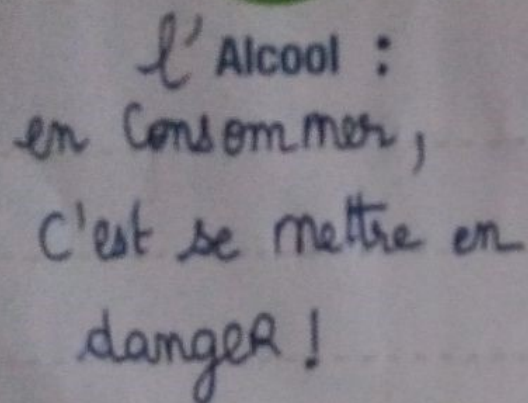 l'Alcool :
en Consommer,
C'est se mettre en
danger !